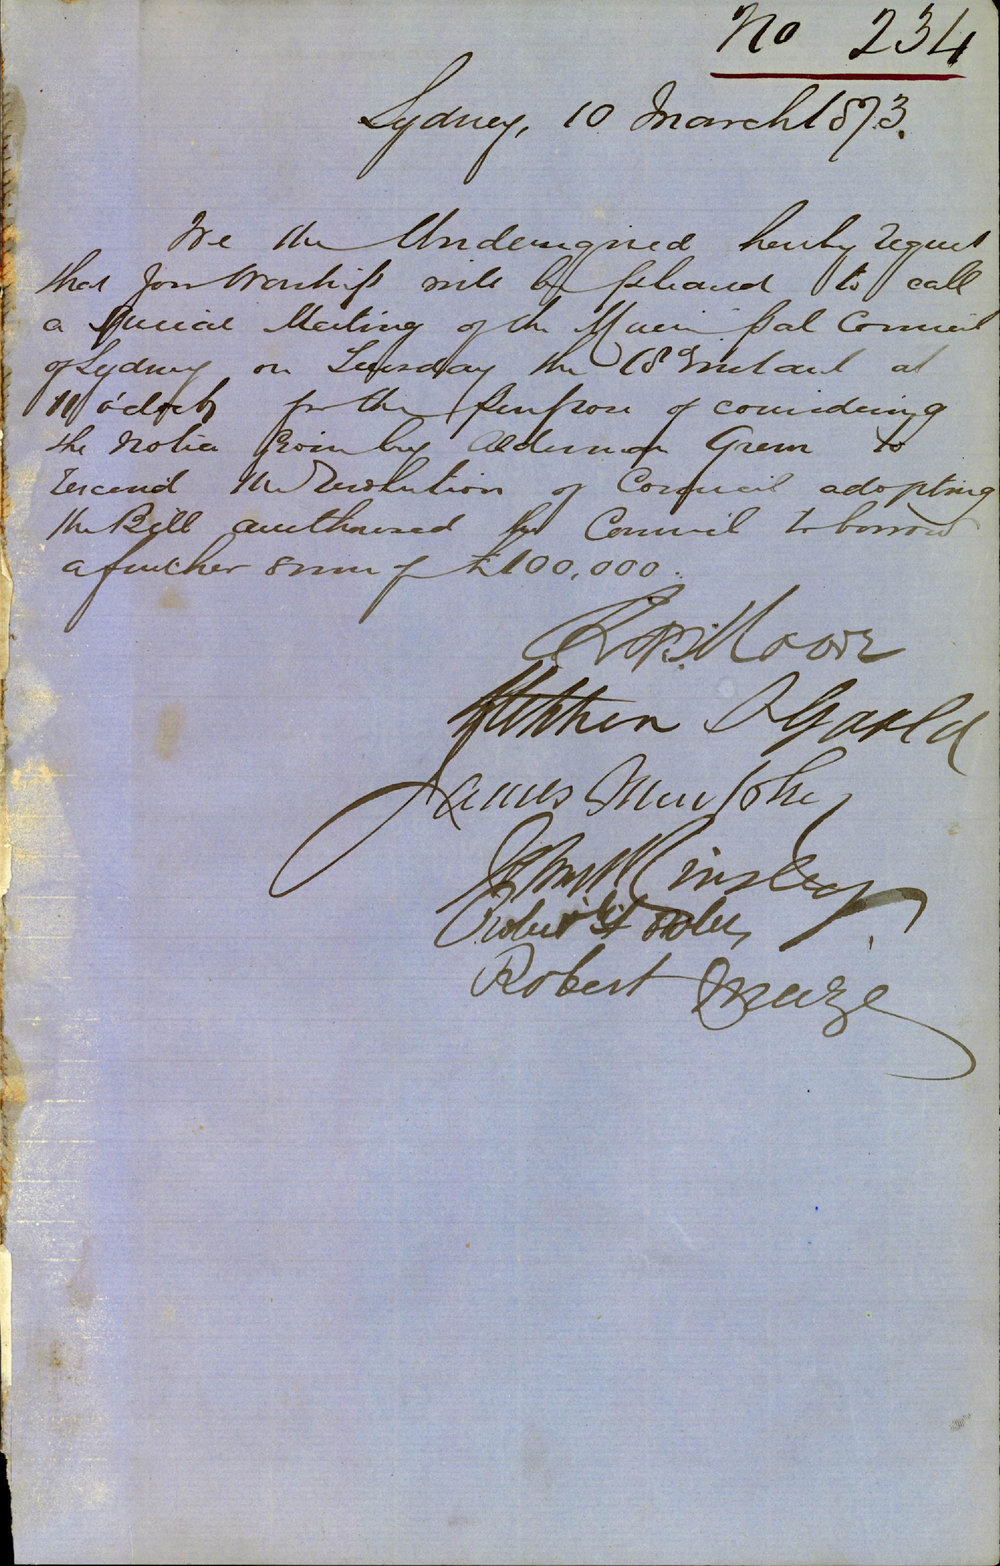 No 234
Sydney, 10 March 1873.
We the Undersigned hereby request
that your Worship will be pleased to call
a Special Meeting of the Municipal Council
of Sydney on Tuesday the 18 Instant at
11 o'clock for the purpose of considering
the Notice Given by Alderman Green to
rescend the resolution of Council adopting
the Bill authorised by Council to borrow
a further sum of £100,000.
Moore
Stephen
James Murphy
John Kinsley
Robert Fowler
Robert